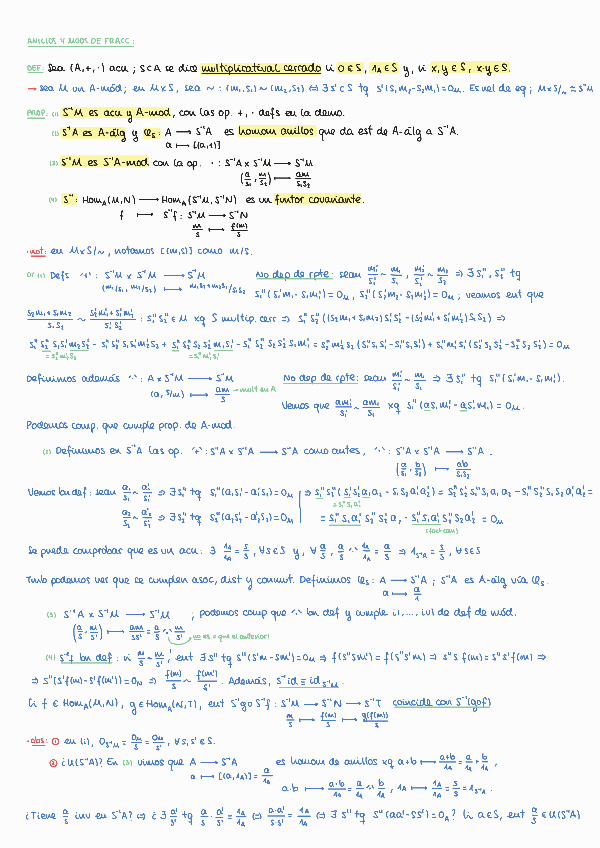 ANILLOS Y MODS DE FRACC:
DEF: Sea (A,+,·) acu; S⊂A se dice multiplicatival cerrado si 0∉S, 1_A∈S y, si x,y∈S, x·y∈S.
→ Sea M un A-mód; en M×S, sea ~: (m₁,s₁)~(m₂,s₂) ⇔ ∃s'∈S tq s'(s₁m₂-s₂m₁)=0_M. Es rel de eq; M×S/~ ≡ S⁻¹M
PROP: (1) S⁻¹M es acu y A-mod, con las op. +, · defs en la demo.
(2) S⁻¹A es A-álg y φ_S: A → S⁻¹A es homom anillos que da est de A-álg a S⁻¹A.
a ↦ [(a,1)]
(3) S⁻¹M es S⁻¹A-mod con la op. ·: S⁻¹A × S⁻¹M → S⁻¹M
(a/s₁, m/s₂) ↦ am/s₁s₂
(4) S⁻¹: Hom_A(M,N) → Hom_A(S⁻¹M, S⁻¹N) es un funtor covariante.
f ↦ S⁻¹f: S⁻¹M → S⁻¹N
m/s ↦ f(m)/s
·not: en M×S/~, notamos [(m,s)] como m/s.
D/ (1) Defs "+": S⁻¹M × S⁻¹M → S⁻¹M No dep de rpte: sean m₁'/s₁' ~ m₁/s₁, m₂'/s₂' ~ m₂/s₂ ⇒ ∃s₁'', s₂'' tq
(m₁/s₁, m₂/s₂) ↦ m₁s₂+m₂s₁/s₁s₂ s₁''(s₁'m₁-s₁m₁')=0_M, s₂''(s₂'m₂-s₂m₂')=0_M; veamos ent que
s₂m₁+s₁m₂/s₁s₂ ~ s₂'m₁'+s₁'m₂'/s₁'s₂' : s₁''s₂''∈S xq S multip. cerr ⇒ s₁''s₂''((s₂m₁+s₁m₂)s₁'s₂'-(s₂'m₁'+s₁'m₂')s₁s₂) ⇒
Definimos además "·": A×S⁻¹M → S⁻¹M No dep de rpte: sean m₁'/s₁' ~ m₁/s₁ ⇒ ∃s₁'' tq s₁''(s₁'m₁-s₁m₁').
(a, s/m) ↦ am/s → mult en A
Vemos que am₁'/s₁' ~ am₁/s₁ xq s₁''(as₁m₁'-as₁'m₁)=0_M.
Podemos comp. que cumple prop. de A-mod.
(2) Definimos en S⁻¹A las op. "+": S⁻¹A×S⁻¹A → S⁻¹A como antes, "·": S⁻¹A×S⁻¹A → S⁻¹A.
(a/s₁, b/s₂) ↦ ab/s₁s₂
Vemos bn def: sean a₁/s₁ ~ a₁'/s₁' ⇒ ∃s₁'' tq s₁''(a₁s₁'-a₁'s₁)=0_M
a₂/s₂ ~ a₂'/s₂' ⇒ ∃s₂'' tq s₂''(a₂s₂'-a₂'s₂)=0_M
Se puede comprobar que es un acu: ∃ 1_A/1_A = s/s, ∀s∈S y, ∀ a/s, a/s "·" 1_A/1_A = a/s ⇒ 1_{S⁻¹A} = s/s, ∀s∈S
Tmb podemos ver que se cumplen asoc, dist y conmut. Definimos φ_S: A → S⁻¹A; S⁻¹A es A-álg vía φ_S.
a ↦ a/1
(3) S⁻¹A × S⁻¹M → S⁻¹M ; podemos comp que "·" bn def y cumple i),..., iv) de def de mód.
(a/s, m/s') ↦ am/ss' = a/s "·" m/s' no es = que el anterior!
(4) S⁻¹f bn def: si m/s ~ m'/s', ent ∃s'' tq s''(s'm-sm')=0_M ⇒ f(s''sm') = f(s''s'm) ⇒ s''s f(m') = s''s' f(m) ⇒
⇒ s''(s'f(m)-sf(m'))=0_N ⇒ f(m)/s ~ f(m')/s'. Además, S⁻¹id ≡ id_{S⁻¹M}.
Si f∈Hom_A(M,N), g∈Hom_A(N,T), ent S⁻¹g∘S⁻¹f: S⁻¹M → S⁻¹N → S⁻¹T coincide con S⁻¹(g∘f)
m/s ↦ f(m)/s ↦ g(f(m))/s
·obs: ① en (1), 0_{S⁻¹M} = 0_M/s = 0_M/s', ∀s,s'∈S.
② ¿U(S⁻¹A)? En (2) vimos que A → S⁻¹A es homom de anillos xq a+b ↦ a+b/1_A = a/1_A + b/1_A,
a ↦ [(a,1_A)] = a/1_A
a·b ↦ a·b/1_A = a/1_A "·" b/1_A, 1_A ↦ 1_A/1_A = s/s = 1_{S⁻¹A}.
¿Tiene a/s inv en S⁻¹A? ⇔ ¿∃ a'/s' tq a/s · a'/s' = 1_A/1_A ⇔ a·a'/s·s' = 1_A/1_A ⇔ ∃s'' tq s''(aa'-ss')=0_A? Si a∈S, ent a/s ∈ U(S⁻¹A)